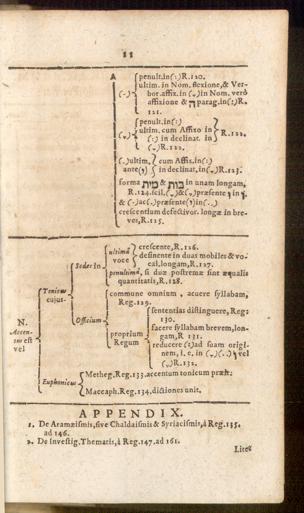 11
A
penult. in (:) R. 120.
ultim. in Nom. flexione, & Ver-
bor. affix. in (ָ) in Nom. verò
affixione & ה parag. in (:) R.
121.
penult. in (:)
ultim. cum Affixo in
(:) in declinat. in
R. 122.
R. 122.
ultim.
cum Affix. in (:)
ante
in declinat. in
R. 123.
forma מית & בות in unam longam,
R. 124. scil.
præsente
crescentium defectivor. longæ in bre-
ves, R. 125.
N.
Accen-
tus est
vel
Tonicus
cujus
Sedes in
ultimâ
voce
crescente, R. 126.
desinente in duas mobiles & vo-
cal. longam, R. 127.
penultimâ, si duæ postremæ sint æqualis
quantitatis, R. 128.
Officium
commune omnium, acuere syllabam,
Reg. 129.
proprium
Regum
sententias distinguere, Reg.
130.
facere syllabam brevem, lon-
gam, R. 131.
reducere (:) ad suam origi-
nem, i. e. in
vel
R. 132.
Euphonicus
Metheg, Reg. 133. accentum tonicum præit:
Maccaph. Reg. 134. dictiones unit.
APPENDIX.
1. De Aramæismis, sive Chaldaismis & Syriacismis, à Reg. 135.
ad 146.
2. De Investig. Thematis, à Reg. 147. ad 161.
Lite-